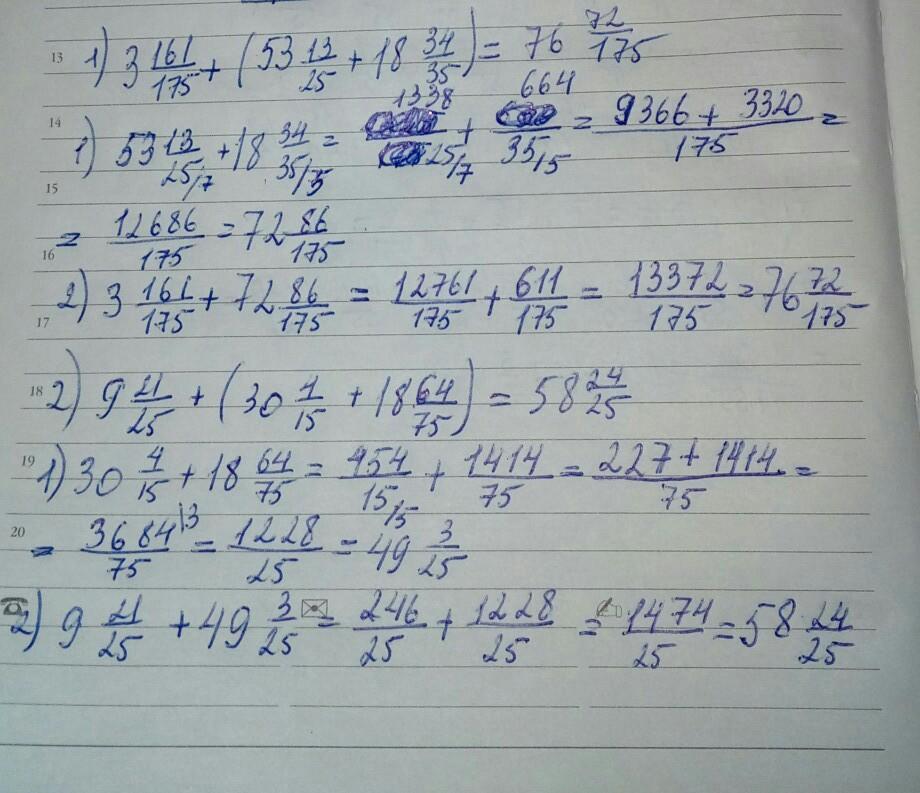 13 1) 3 161/175 + (53 13/25 + 18 34/35) = 76 72/175
14 1) 53 13/25/7 + 18 34/35/5 = 1338/25/7 + 664/35/5 = (9366 + 3320)/175 =
15
16 = 12686/175 = 72 86/175
17 2) 3 161/175 + 72 86/175 = 12761/175 + 611/175 = 13372/175 = 76 72/175
18 2) 9 21/25 + (30 4/15 + 18 64/75) = 58 24/25
19 1) 30 4/15 + 18 64/75 = 454/15/5 + 1414/75 = (227 + 1414)/75 =
20 = 3684/3/75 = 1228/25 = 49 3/25
2) 9 21/25 + 49 3/25 = 246/25 + 1228/25 = 1474/25 = 58 24/25